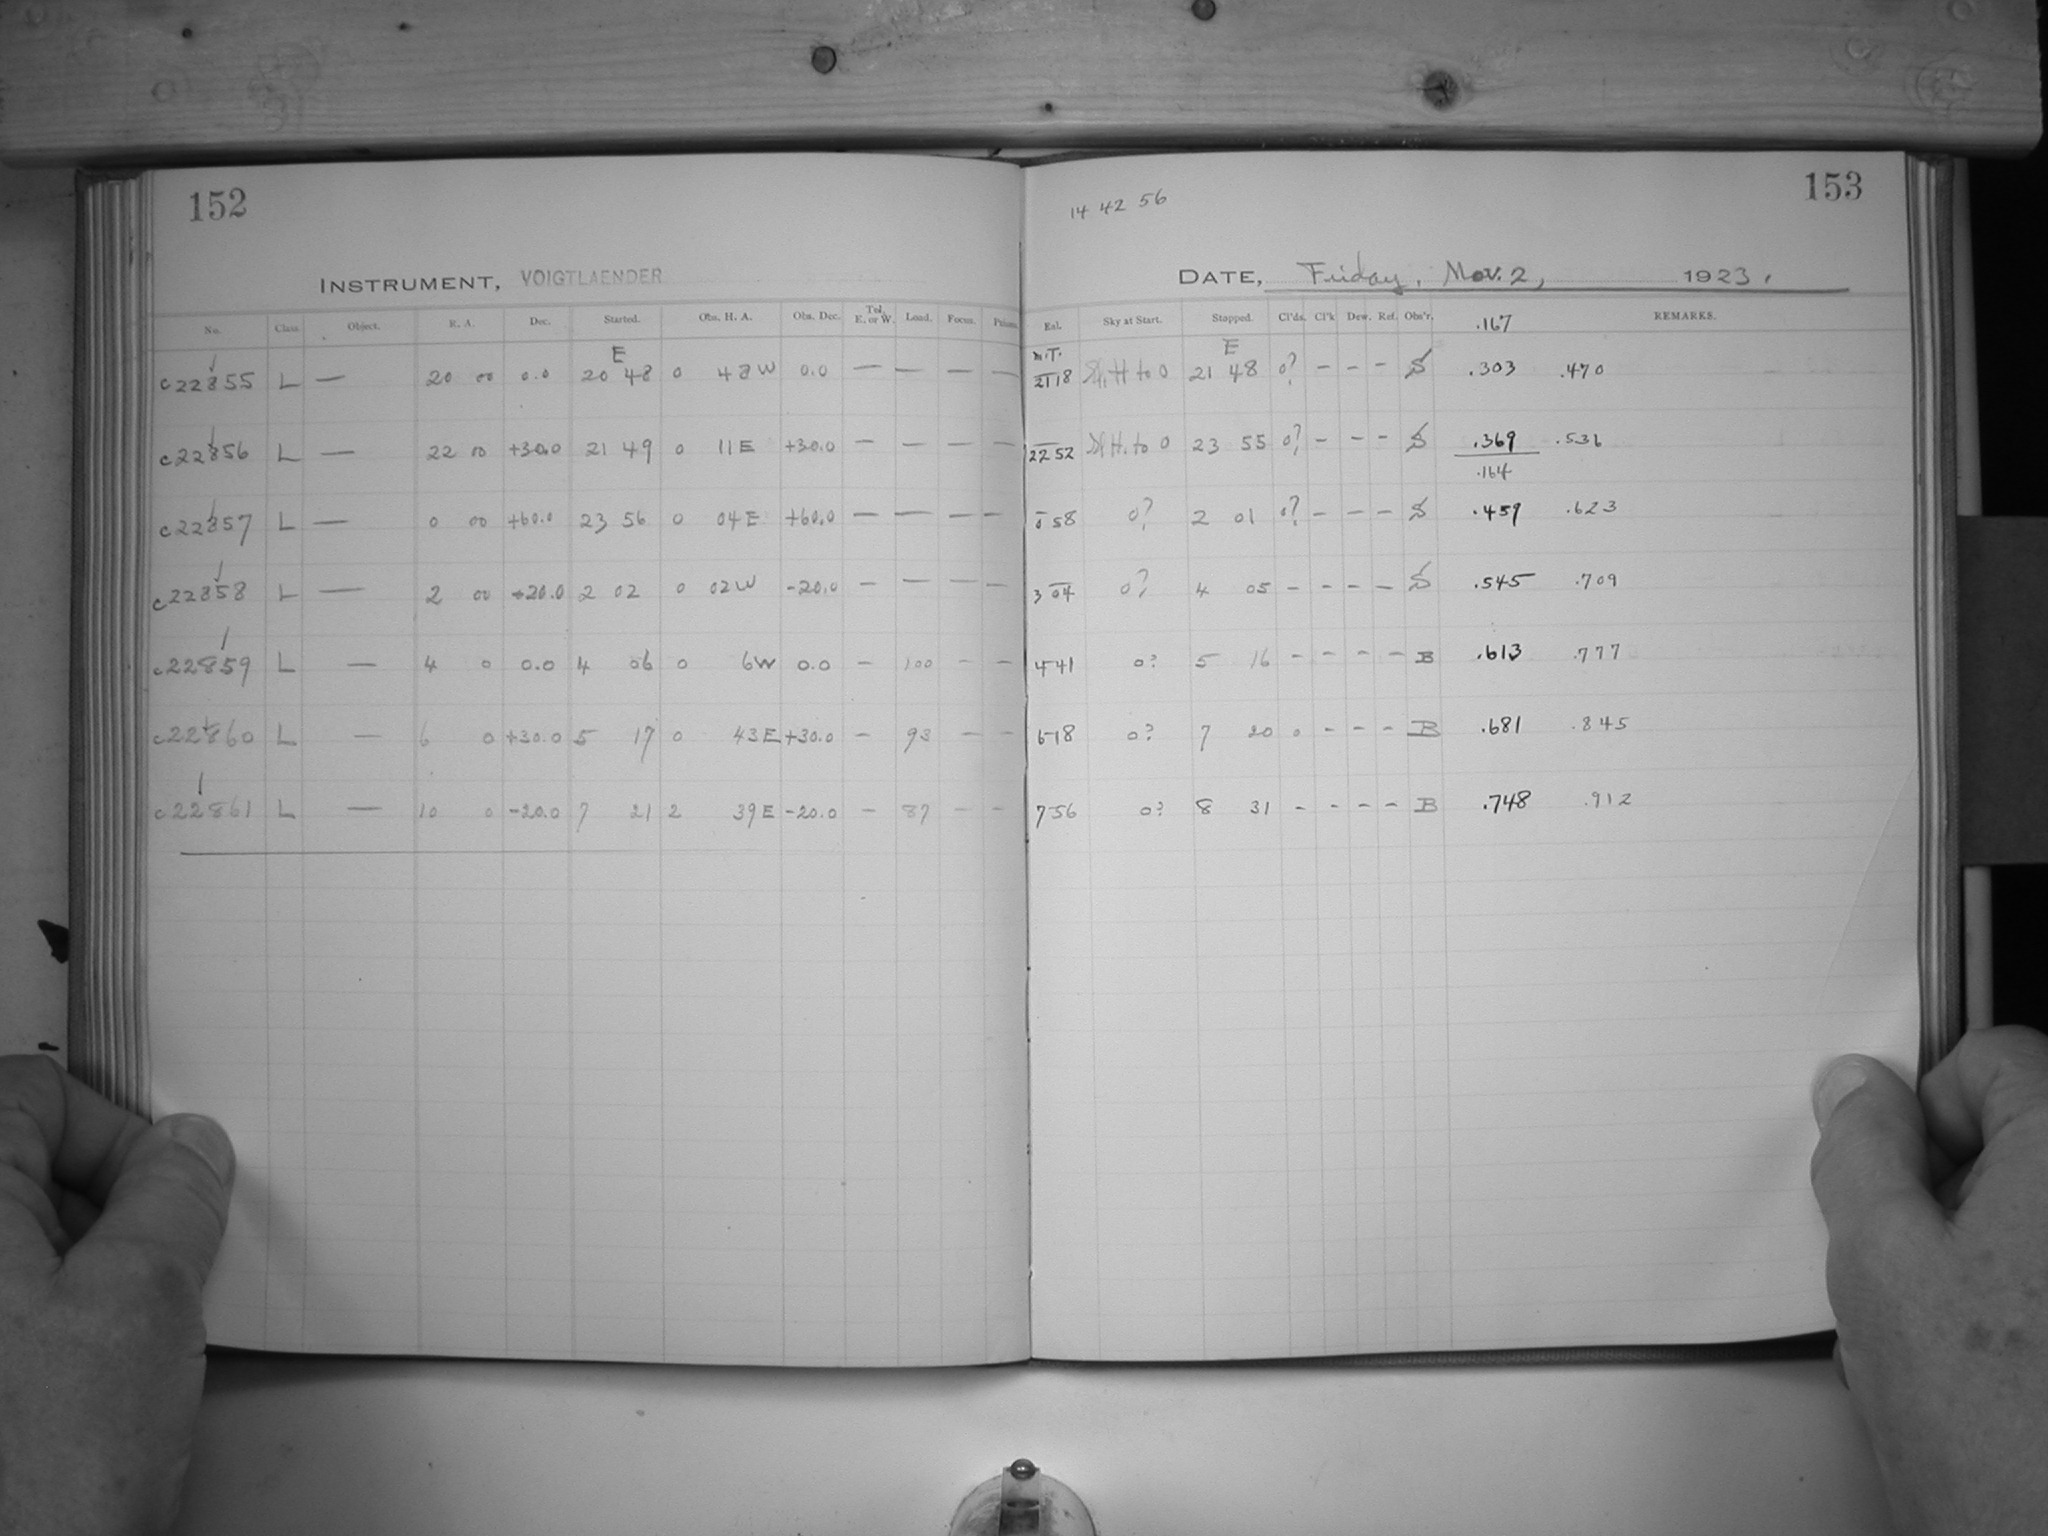 152
INSTRUMENT, VOIGTLAENDER
No. Class Object. R. A. Dec. Started. Obs. H. A. Obs. Dec. Tel. E. or W. Load. Focus. Prisms.
E
c22855 L — 20 00 0.0 20 48 0 48W 0.0 — — — —
c22856 L — 22 00 +30.0 21 49 0 11E +30.0 — — — —
c22857 L — 0 00 +60.0 23 56 0 04E +60.0 — — — —
c22858 L — 2 00 -20.0 2 02 0 02W -20.0 — — — —
c22859 L — 4 0 0.0 4 06 0 6W 0.0 — 100 — —
c22860 L — 6 0 +30.0 5 17 0 43E +30.0 — 93 — —
c22861 L — 10 0 -20.0 7 21 2 39E -20.0 — 87 — —
153
14 42 56
DATE, Friday, Nov. 2, 1923.
Sky at Start. Stopped. Cl'ds. Cl'k Dew. Ref. Obs'r. .167 REMARKS.
M.T. E
21 18 H to 0 21 48 0? - - - S .303 .470
22 52 H. to 0 23 55 0? - - - S .369 .536
.164
0 58 0? 2 01 0? - - - S .459 .623
3 04 0? 4 05 - - - - S .545 .709
4 41 0? 5 16 - - - - B .613 .777
6 18 0? 7 20 0 - - - B .681 .845
7 56 0? 8 31 - - - - B .748 .912